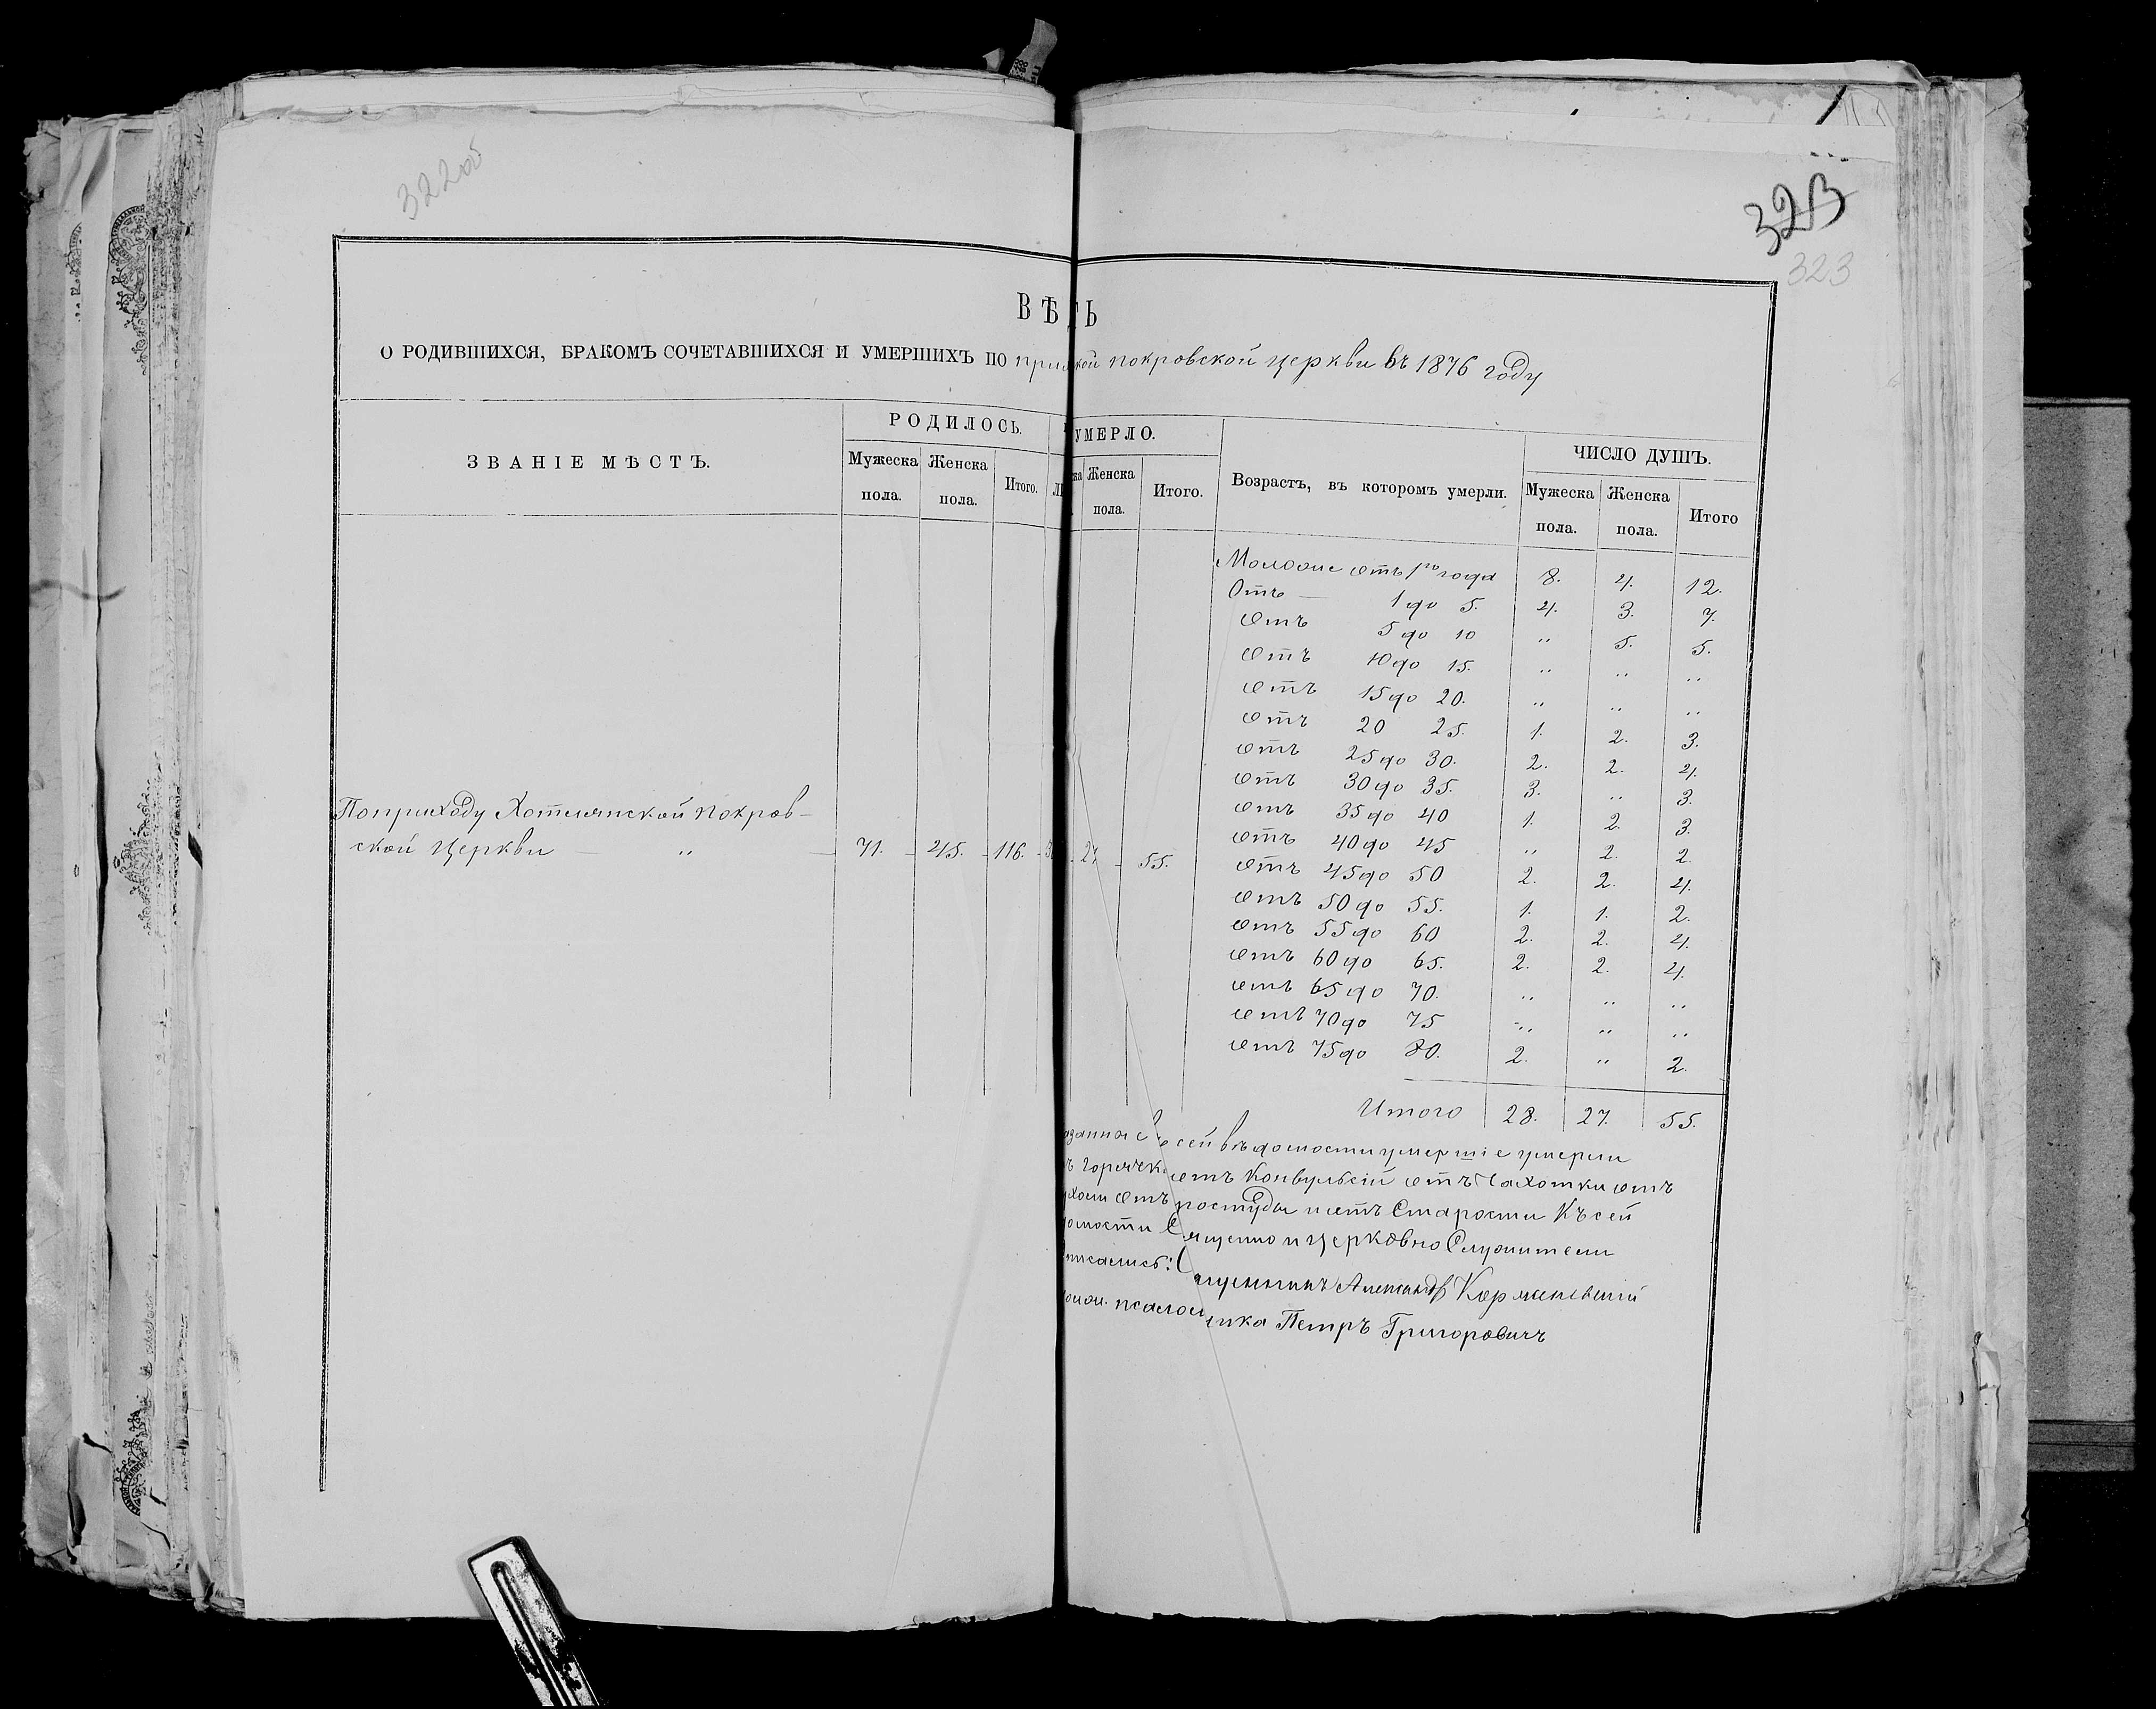 322об
323
323
ВѢ ТЬ
О РОДИВШИХСЯ, БРАКОМЪ СОЧЕТАВШИХСЯ И УМЕРШИХЪ ПО при кой покровской церкви въ 1876 году
ЗВАНІЕ МѢСТЪ.
РОДИЛОСЬ.
Мужеска пола.
Женска пола.
Итого.
УМЕРЛО.
Женска пола.
Итого.
Возрастъ, въ которомъ умерли.
ЧИСЛО ДУШЪ.
Мужеска пола.
Женска пола.
Итого
По приходу Хотмянской покров-
ской церкви — „ 71. 45. 116. 27 55.
Моложе отъ 1го года 8. 4. 12.
Отъ — 1 до 5. 4. 3. 7.
Отъ 5 до 10 „ 5. 5.
Отъ 10 до 15. „ „ „
Отъ 15 до 20. „ „ „
Отъ 20 25. 1. 2. 3.
Отъ 25 до 30. 2. 2. 4.
Отъ 30 до 35. 3. „ 3.
Отъ 35 до 40 1. 2. 3.
Отъ 40 до 45 „ 2. 2.
Отъ 45 до 50 2. 2. 4.
Отъ 50 до 55. 1. 1. 2.
Отъ 55 до 60 2. 2. 4.
Отъ 60 до 65. 2. 2. 4.
Отъ 65 до 70. „ „ „
Отъ 70 до 75 „ „ „
Отъ 75 до 80. 2. „ 2.
Итого 28. 27. 55.
сей вѣдомости умершіе умерли
отъ Конвульсій отъ Чахотки отъ
отъ простуды и отъ Старости Къ сей
и церковно Служители
Александръ
Петръ Григоровичъ